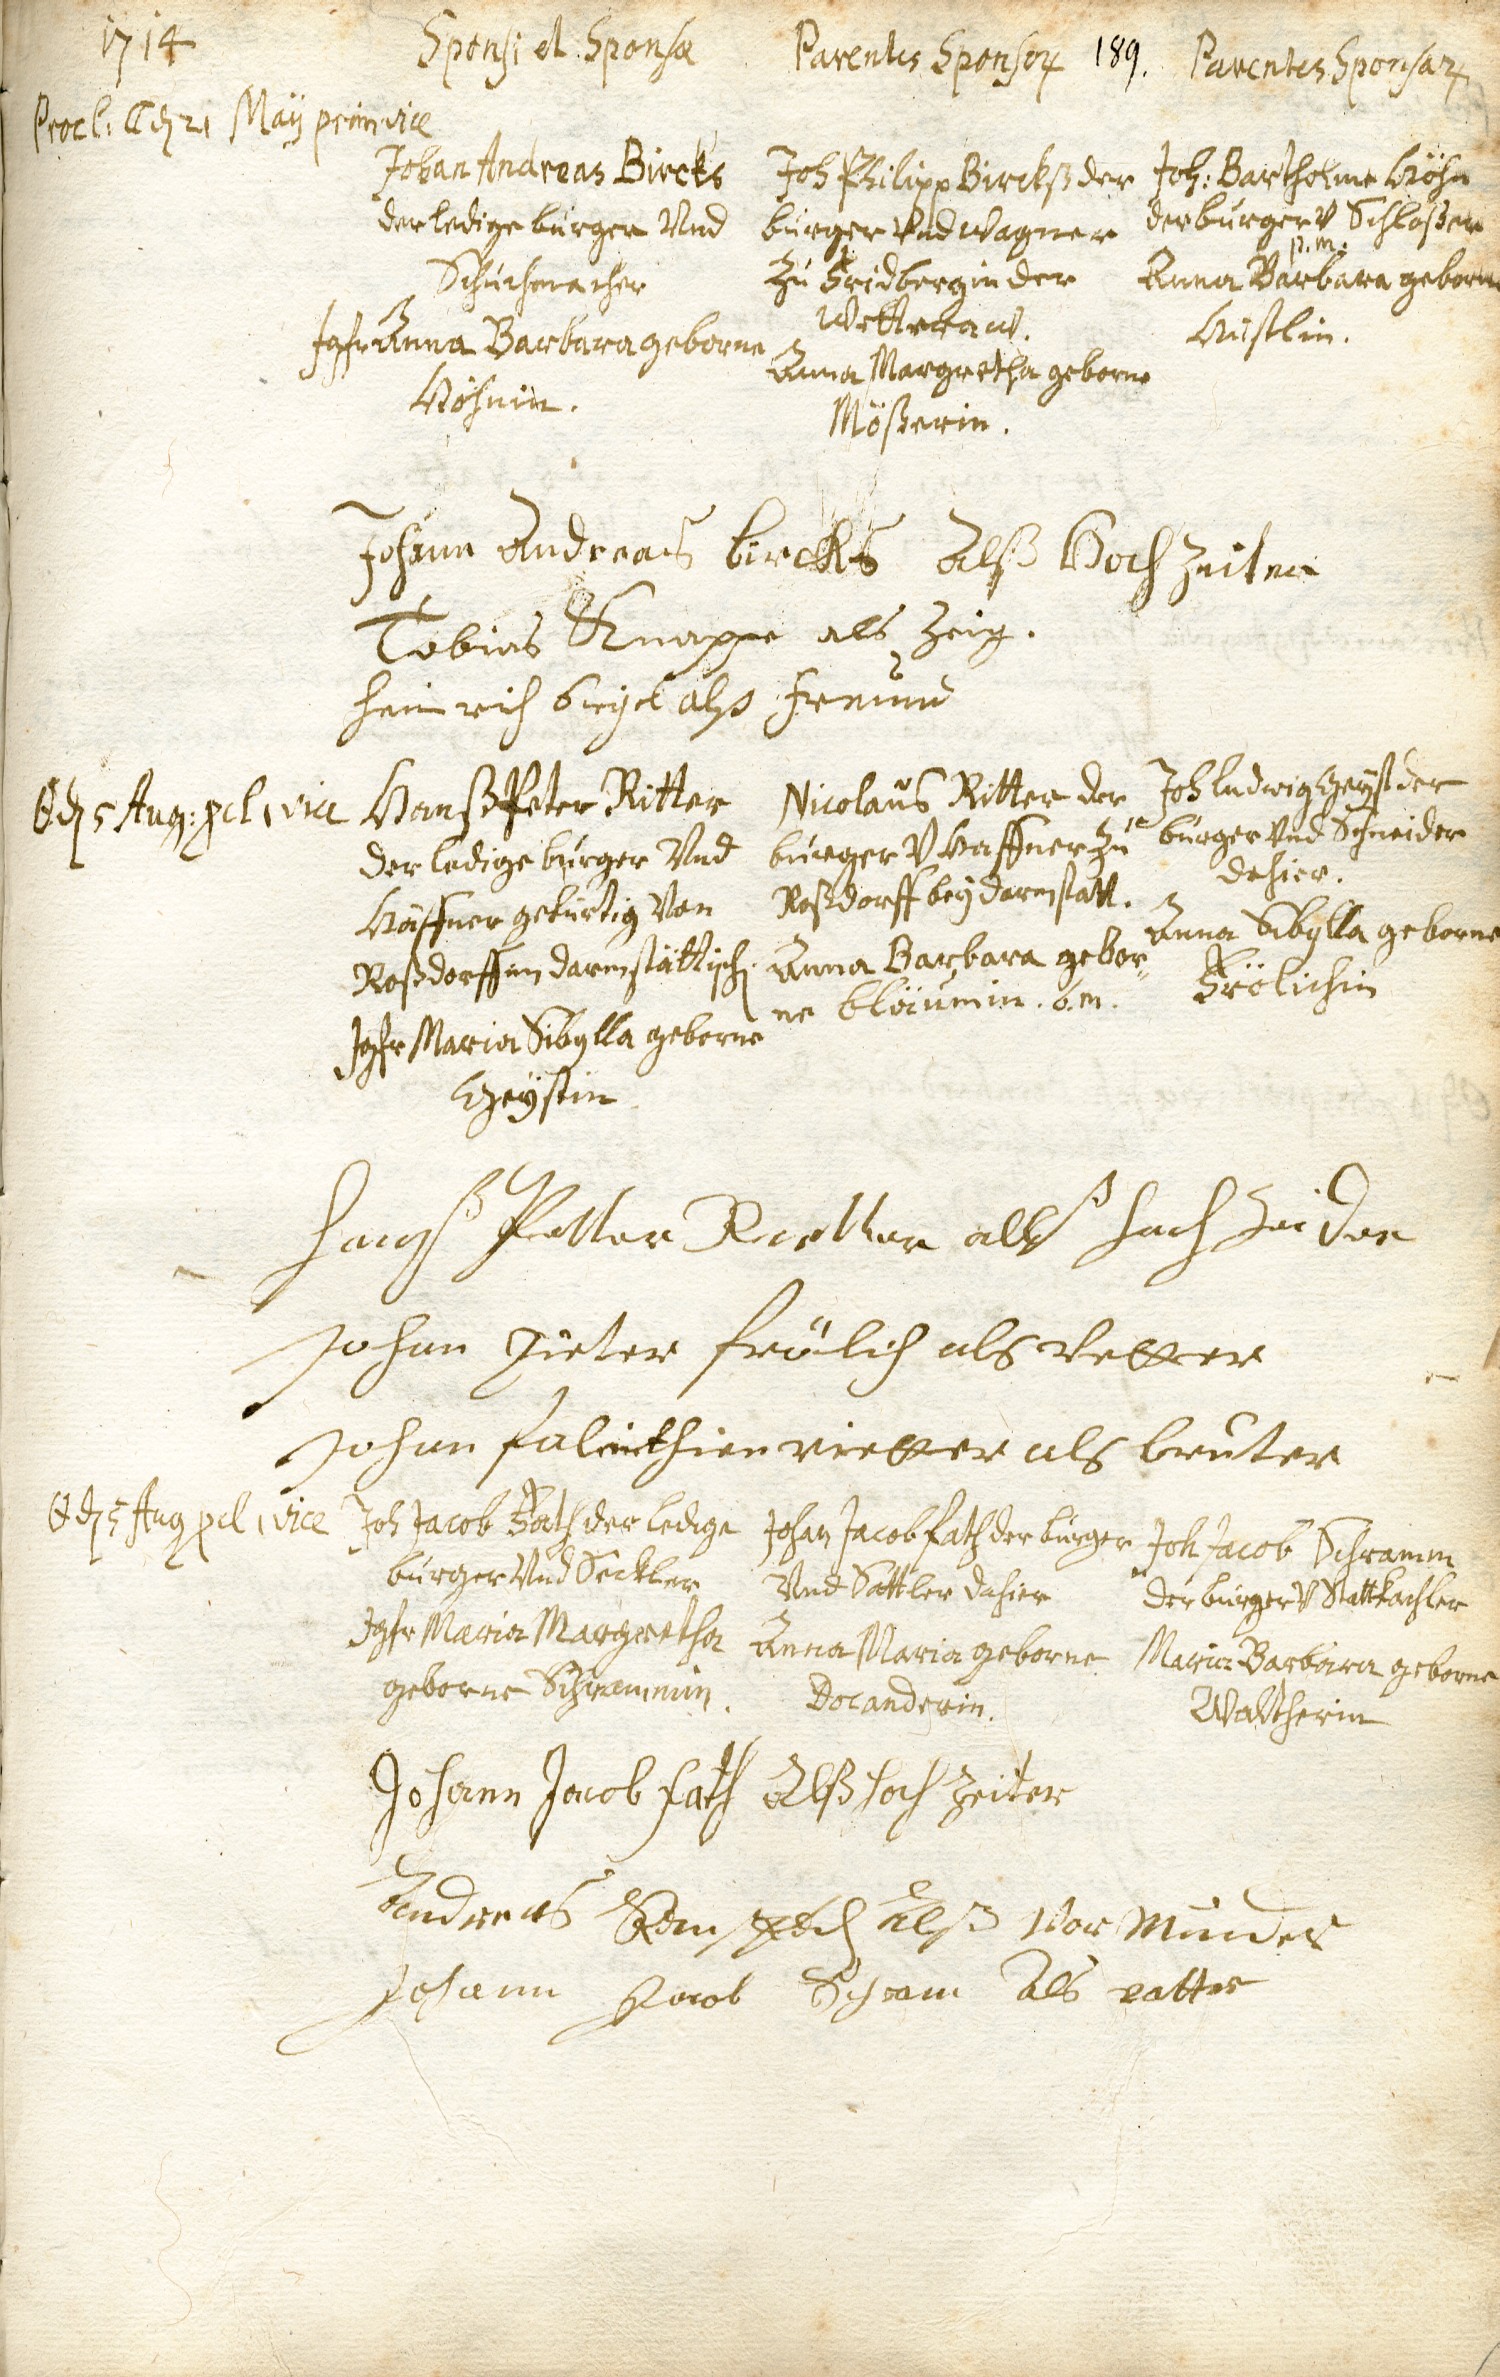 1714
Sponsi et Sponsæ
Parentes Sponsor
189.
Parentes Sponsar
Procl: 21 Maÿ prim vice
Johan Andreas Bircks
der ledige burger Vnd
Schuchmacher
Jgfr Anna Barbara geborne
Höhnin.
Joh Philipp Birckß der
burger Vnd Wagner
zu Fridberg in der
Wetteraw.
Anna Margretha geborne
Mößerin.
Joh: Bartholme Höhn
der burger V Schloßer
p.m.
Anna Barbara geborne
Hüstlin.
Johann Andreas bircks Alß Hoch zeiter
Tobias Knappe als Zeig.
heinrich alß freund
5 Aug: pcl 1 vice
Hanß Peter Ritter
der ledige burger Vnd
Häffner gebürtig Von
Roßdorff im darmstättisch
Jgfr Maria Sibylla geborne
Geÿstin
Nicolaus Ritter der
burger V Haffner zu
Roßdorff beÿ darmstatt.
Anna Barbara gebor-
ne bläumin. b.m.
Joh ludwig Geÿst der
burger Vnd Schneider
dahier.
Anna Sibylla geborne
Frölichin
hanß Petter Rietter alß hochzeider
Johan Pieter frölich als Vetter
Johan falinthien rietter als bruter
5 Aug pcl 1 vice
Joh Jacob Fath der ledige
burger Vnd Seckler
Jgfr Maria Margretha
geborne Schrammin.
Johan Jacob fath der burger
Vnd Sattler dahier
Anna Maria geborne
Docanderin.
Joh Jacob Schramm
der burger V Stattkachler
Maria Barbara geborne
Waltherin
Johann Jacob fath Alß hoch zeiter
Andreas Alß Vor Münder
Johann Jacob Schram Als vatter